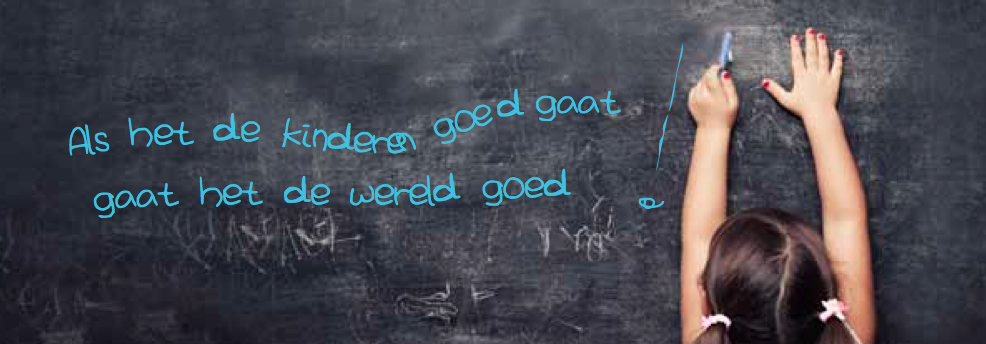 Als het de kinderen goed gaat
gaat het de wereld goed!